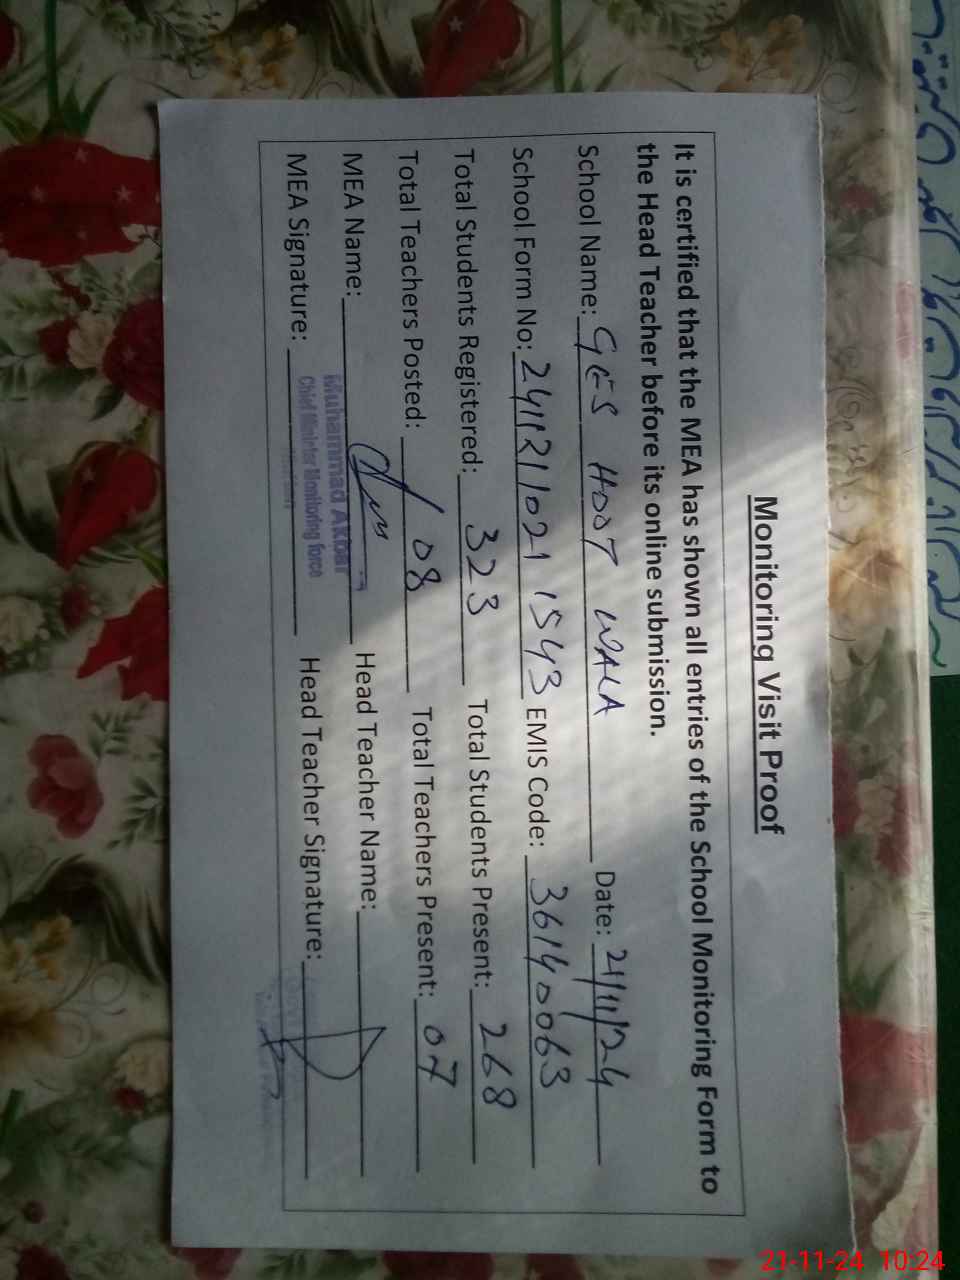 Monitoring Visit Proof
It is certified that the MEA has shown all entries of the School Monitoring Form to
the Head Teacher before its online submission.
School Name: GES HOOT WALA Date: 21/11/24
School Form No: 24112110211543 EMIS Code: 36140063
Total Students Registered: 323 Total Students Present: 268
Total Teachers Posted: 08 Total Teachers Present: 07
MEA Name: Head Teacher Name:
Muhammad Akbar
MEA Signature: Head Teacher Signature:
Chief Minister Monitoring force
21-11-24 10:24